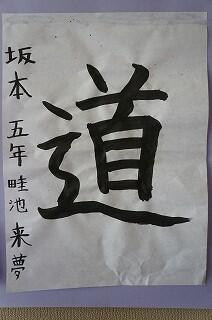 道
坂本 五年 畦池 来夢